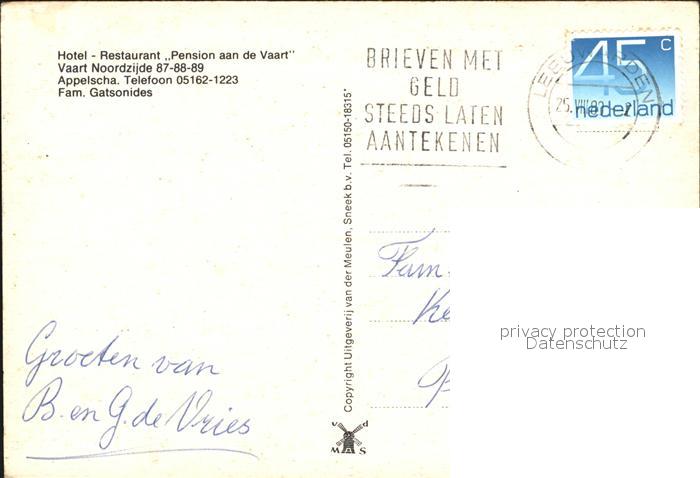 Hotel - Restaurant „Pension aan de Vaart"
Vaart Noordzijde 87-88-89
Appelscha. Telefoon 05162-1223
Fam. Gatsonides
BRIEVEN MET
GELD
STEEDS LATEN
AANTEKENEN
LEEUWARDEN
45 c
nederland
Copyright Uitgeverij van der Meulen, Sneek b.v. Tel. 05150-18315*
Fam.
privacy protection
Datenschutz
Groeten van
B. en G. de Vries
v d
M S